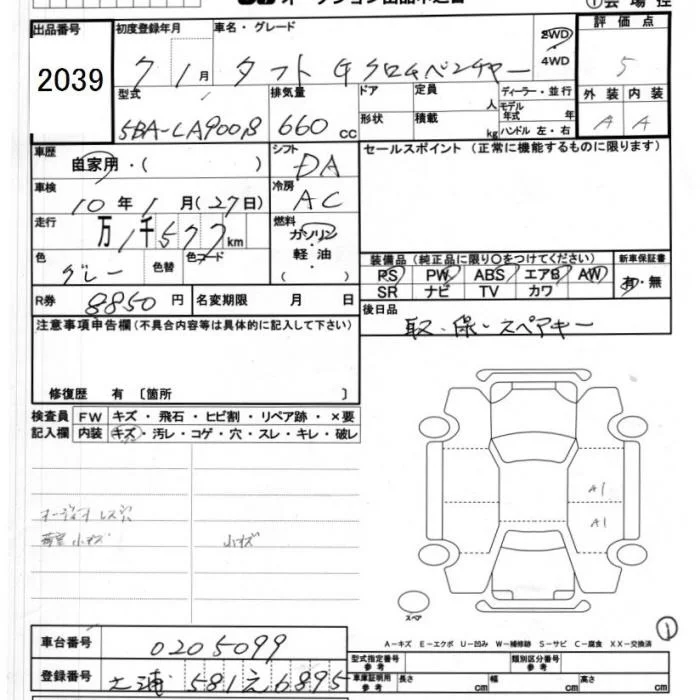 出品番号
2039
初度登録年月
7 1月
車名・グレード
タフト G クロムベンチャー
2WD
4WD
評価点
5
型式
5BA-LA900S
排気量
660 cc
ドア
定員
人
ディーラー・並行
形状
積載
kg
モデル年式
年
ハンドル 左・右
外装
内装
A
A
車歴
自家用・( )
シフト
DA
車検
10年1月(27日)
冷房
AC
走行
万1千577km
燃料
ガソリン
軽油
( )
色
グレー
色替
色コード
R券
8850円
名変期限 月 日
セールスポイント (正常に機能するものに限ります)
装備品 (純正品に限り○をつけてください)
新車保証書
PS PW ABS エアB AW
有・無
SR ナビ TV カワ
後日品
取・保・スペアキー
注意事項申告欄(不具合内容等は具体的に記入して下さい)
修復歴 有〔箇所 〕
検査員記入欄
FW キズ・飛石・ヒビ割・リペア跡・×要
内装 キズ・汚レ・コゲ・穴・スレ・キレ・破レ
オーディオレス
荷室小キズ
小キズ
A1
A1
スペア
1
A-キズ E-エクボ U-凹み W-補修跡 S-サビ C-腐食 XX-交換済
車台番号
0205099
登録番号
土浦 581 え 6895
型式指定番号
参考
類別区分番号
参考
車庫証明用
参考
長さ cm
幅 cm
高さ cm